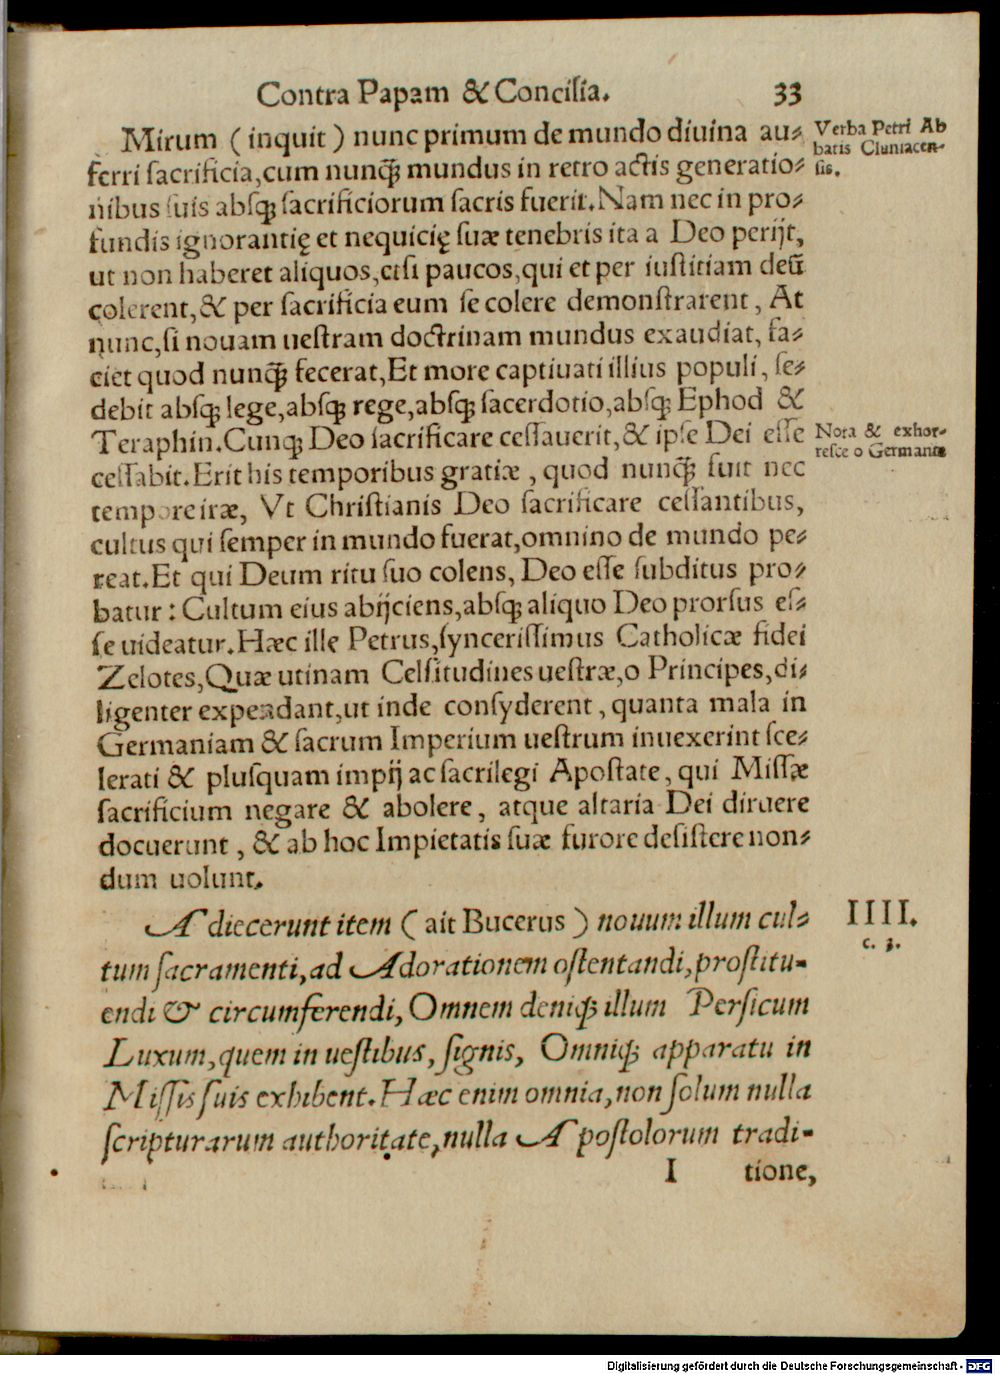 Contra Papam & Concilia. 33
Mirum (inquit) nunc primum de mundo diuina au-
ferri ſacrificia, cum nunq̃ mundus in retro actis generatio-
nibus ſuis abſq; ſacrificiorum ſacris fuerit. Nam nec in pro-
fundis ignorantię et nequicię ſuæ tenebris ita a Deo perijt,
ut non haberet aliquos, etſi paucos, qui et per iuſtitiam deũ
colerent, & per ſacrificia eum ſe colere demonſtrarent, At
nunc, ſi nouam ueſtram doctrinam mundus exaudiat, fa-
ciet quod nunq̃ fecerat, Et more captiuati illius populi, ſe-
debit abſq; lege, abſq; rege, abſq; ſacerdotio, abſq; Ephod &
Teraphin. Cunq; Deo ſacrificare ceſſauerit, & ipſe Dei eſſe
ceſſabit. Erit his temporibus gratiæ, quod nunq̃ fuit nec
tempore iræ, Vt Chriſtianis Deo ſacrificare ceſſantibus,
cultus qui ſemper in mundo fuerat, omnino de mundo pe-
reat. Et qui Deum ritu ſuo colens, Deo eſſe ſubditus pro-
batur: Cultum eius abijciens, abſq; aliquo Deo prorſus eſ-
ſe uideatur. Hæc ille Petrus, ſynceriſſimus Catholicæ fidei
Zelotes, Quæ utinam Celſitudines ueſtræ, o Principes, di-
ligenter expendant, ut inde conſyderent, quanta mala in
Germaniam & ſacrum Imperium ueſtrum inuexerint ſce-
lerati & pluſquam impij ac ſacrilegi Apoſtate, qui Miſſæ
ſacrificium negare & abolere, atque altaria Dei diruere
docuerunt, & ab hoc Impietatis ſuæ furore deſiſtere non-
dum uolunt.
Adiecerunt item (ait Bucerus) nouum illum cul-
tum ſacramenti, ad Adorationem oſtentandi, proſtitu-
endi & circumferendi, Omnem deniq; illum Perſicum
Luxum, quem in ueſtibus, ſignis, Omniq; apparatu in
Miſſis ſuis exhibent. Hæc enim omnia, non ſolum nulla
ſcripturarum authoritate, nulla Apoſtolorum tradi-
I tione,
Verba Petri Ab
batis Cluniacen-
ſis.
Nota & exhor-
reſce o Germania
IIII.
c. 3.
Digitalisierung gefördert durch die Deutsche Forschungsgemeinschaft - DFG